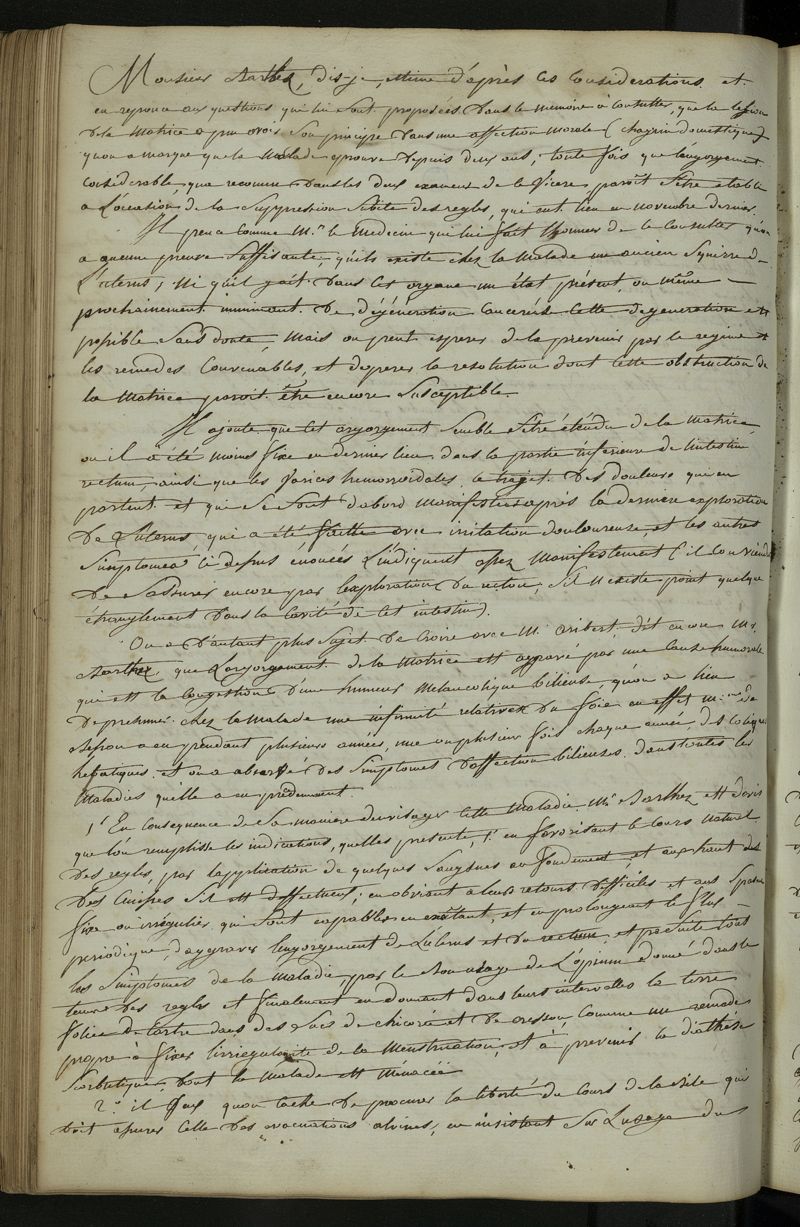 Monsieur Barthez, dis-je, estime d'après ces considerations et
en reponce aux questions qui lui sont proposées dans le memoire à consulter, que la lesion
de la matrice a pu avoir son principe dans une affection morale (chagrin domestique)
qu'on a marque que la malade eprouve depuis deux ans; toute fois que l'engorgement
considerable, que reconnu dans les deux examens de le vicere paroit s'etre etablie
a l'occasion de la suppression subite des regles, qui eut lieu en novembre dernier.
Il pence comme Mr. le medecin qui lui fait l'honneur de le consulter qu'on
a aucune preuve suffisante, qu'ils existe chez la malade un ancien squirre de
l'uterus; ni qu'il y ait dans cet organe un état présent, ou même
prochainement imminent de dégénération cancereuse cette degeneration est
possible sans doute, mais on peut esperer de la prevenir par le regime et
les remedes convenables, et d'operer la resolution dont cette obstruction de
la matrice paroit être encore susceptible.
Il ajoute que cet orgorgement semble s'etre étendu de la matrice
ou il a été moins fixe en dernier lieu dans la partie inferieure de l'intestin
rectum, ainsi que les varices hemorroidales le trajet des douleurs qui en
partent et qui se sont d'abord manifestées après la derniere exploration
de l'uterus, qui a été faitte avec irritation douloureuse, et les autres
simptomes ci dessus énoncés l'indiquent assez manifestement (il conviendra
de s'assurer encore par l'exploration du rectum, s'il n'existe point quelque
étranglement dans la cavité de cet intestin).
On a d'autant plus sujet de croire avec M. aribert, dit encore Mr.
Barthez, que l'orgorgement de la matrice est aggravé par une cause humorale
qui est la congestion d'une humeur melancolique bilieuse, qu'on a lieu
de presumer chez la malade une infirmité relative du foie en effet Mme de
a eu pendant plusieurs années, une ou plusieurs fois chaque année, des coliques
hepatiques et on a observé des simptomes d'affection bilieuses dans toutes les
maladies qu'elle a eu précédemment.
1º En consequence de sa maniere d'envisager cette maladie, Mr Barthez est d'avis
que l'on remplisse les indications, quelles presente, 1º en favorisant le cours naturel
des regles, par l'application de quelques sangsues au fondement, et au haut des
des cuisses s'il est; en obviant a leurs retours difficiles et aux spasmes
fixe ou irregulier, qui sont capables en existant, et en prolongeant le flux
periodique, d'aggraver l'engorgement de l'uterus et du rectum et par suite tout
les simptomes de la maladie, par le bon usage de l'opium donné dans le
tems des regles et finalement en donnant dans leurs intervalles la terre
foliée de tartre dans des sucs de chicorée et de cresson, comme un remede
propre à fixer l'irregularité de la menstruation, et à prevenir la diathése
scorbutique, dont la malade est menacée
2.º il faut qu'on tache de procurer la liberté du cours de la bile qui
doit assurer celle des evacuations alvines, en insistant sur l'usage du